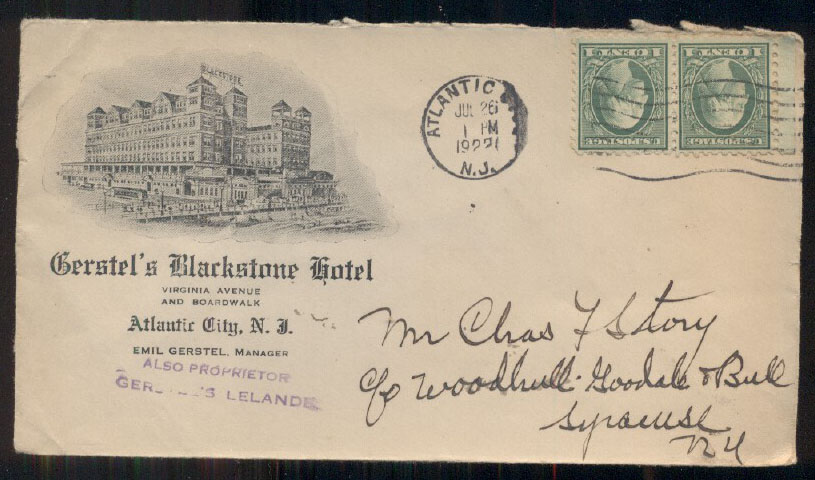 BLACKSTONE
Gerstel's Blackstone Hotel
VIRGINIA AVENUE
AND BOARDWALK
Atlantic City, N. J.
EMIL GERSTEL, MANAGER
ALSO PROPRIETOR
LELANDE
ATLANTIC
JUL 26
1 PM
192
N.J.
1 CENT 1
U.S. POSTAGE
1 CENT 1
U.S. POSTAGE
Mr Chas F Story
c/o Woodhull Goodale & Bull
Syracuse
N Y